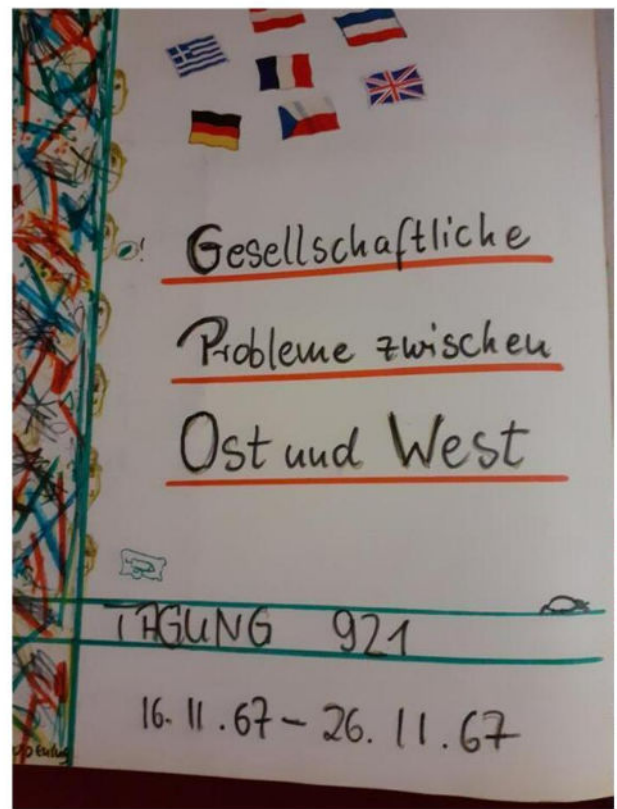 Gesellschaftliche
Probleme zwischen
Ost und West
TAGUNG 921
16. 11. 67 – 26. 11. 67